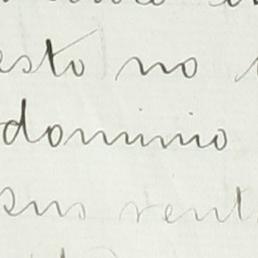 esto no
dominio
sus vent